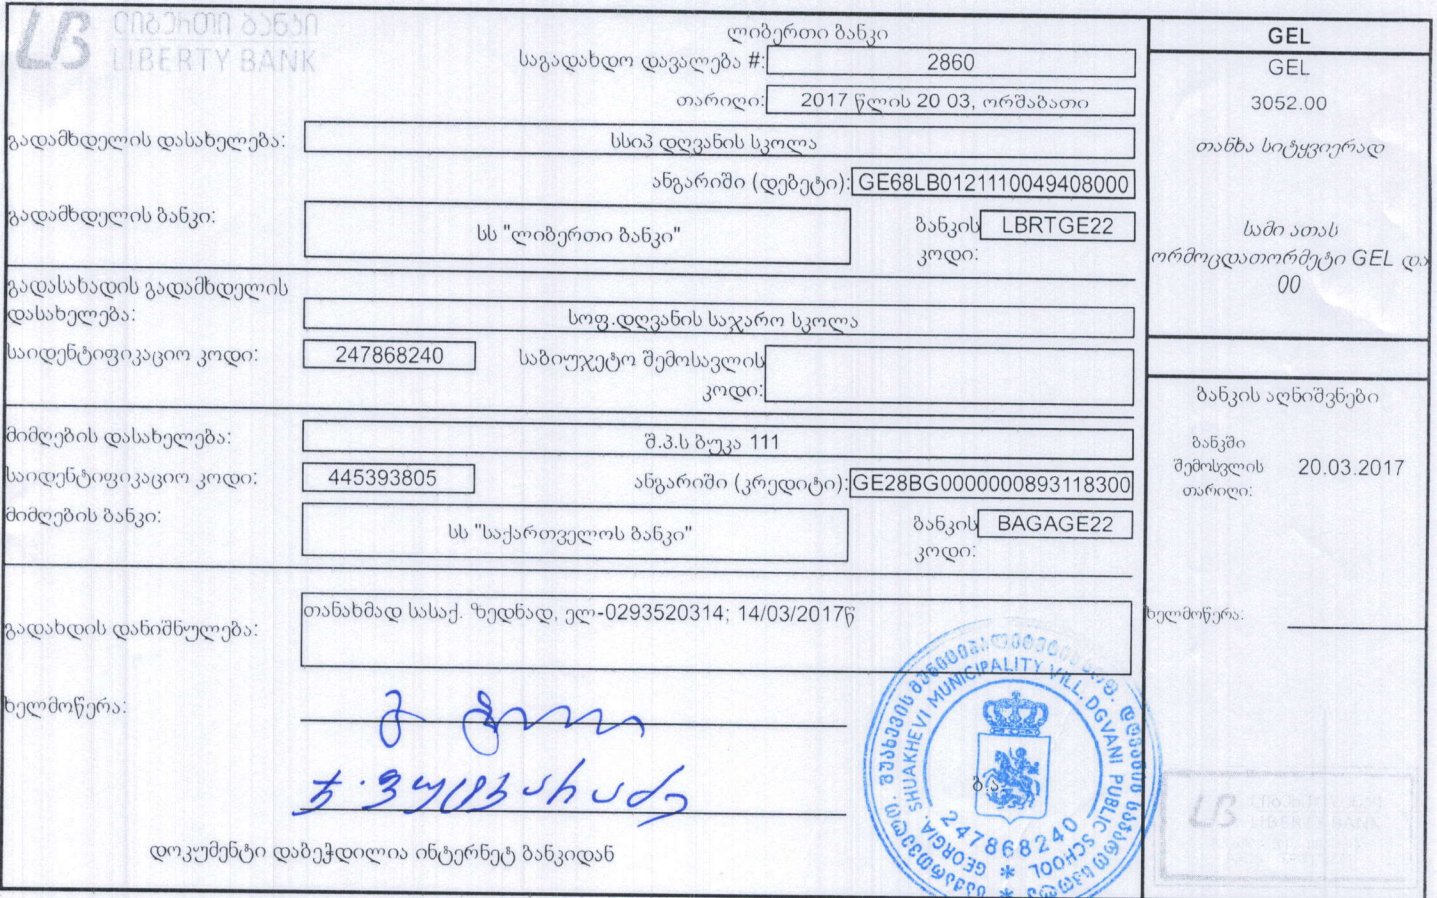 ლიბერთი ბანკი
LIBERTY BANK
ლიბერთი ბანკი
საგადახდო დავალება #: 2860
თარიღი: 2017 წლის 20 03, ორშაბათი
გადამხდელის დასახელება: სსიპ დღვანის სკოლა
ანგარიში (დებეტი): GE68LB0121110049408000
გადამხდელის ბანკი: სს "ლიბერთი ბანკი" ბანკის კოდი: LBRTGE22
გადასახადის გადამხდელის
დასახელება: სოფ.დღვანის საჯარო სკოლა
საიდენტიფიკაციო კოდი: 247868240 საბიუჯეტო შემოსავლის
კოდი:
მიმღების დასახელება: შ.პ.ს ბუკა 111
საიდენტიფიკაციო კოდი: 445393805 ანგარიში (კრედიტი): GE28BG0000000893118300
მიმღების ბანკი: სს "საქართველოს ბანკი" ბანკის კოდი: BAGAGE22
გადახდის დანიშნულება: თანახმად სასაქ. ზედნად, ელ-0293520314; 14/03/2017წ
ხელმოწერა:
ბ.ა.
დოკუმენტი დაბეჭდილია ინტერნეტ ბანკიდან
GEL
GEL
3052.00
თანხა სიტყვიერად
სამი ათას
ორმოცდათორმეტი GEL და
00
ბანკის აღნიშვნები
ბანკში
შემოსვლის 20.03.2017
თარიღი:
ხელმოწერა:
SHUAKHEVI MUNICIPALITY VILL. DGVANI PUBLIC SCHOOL
GEORGIA
247868240
LIBERTY BANK